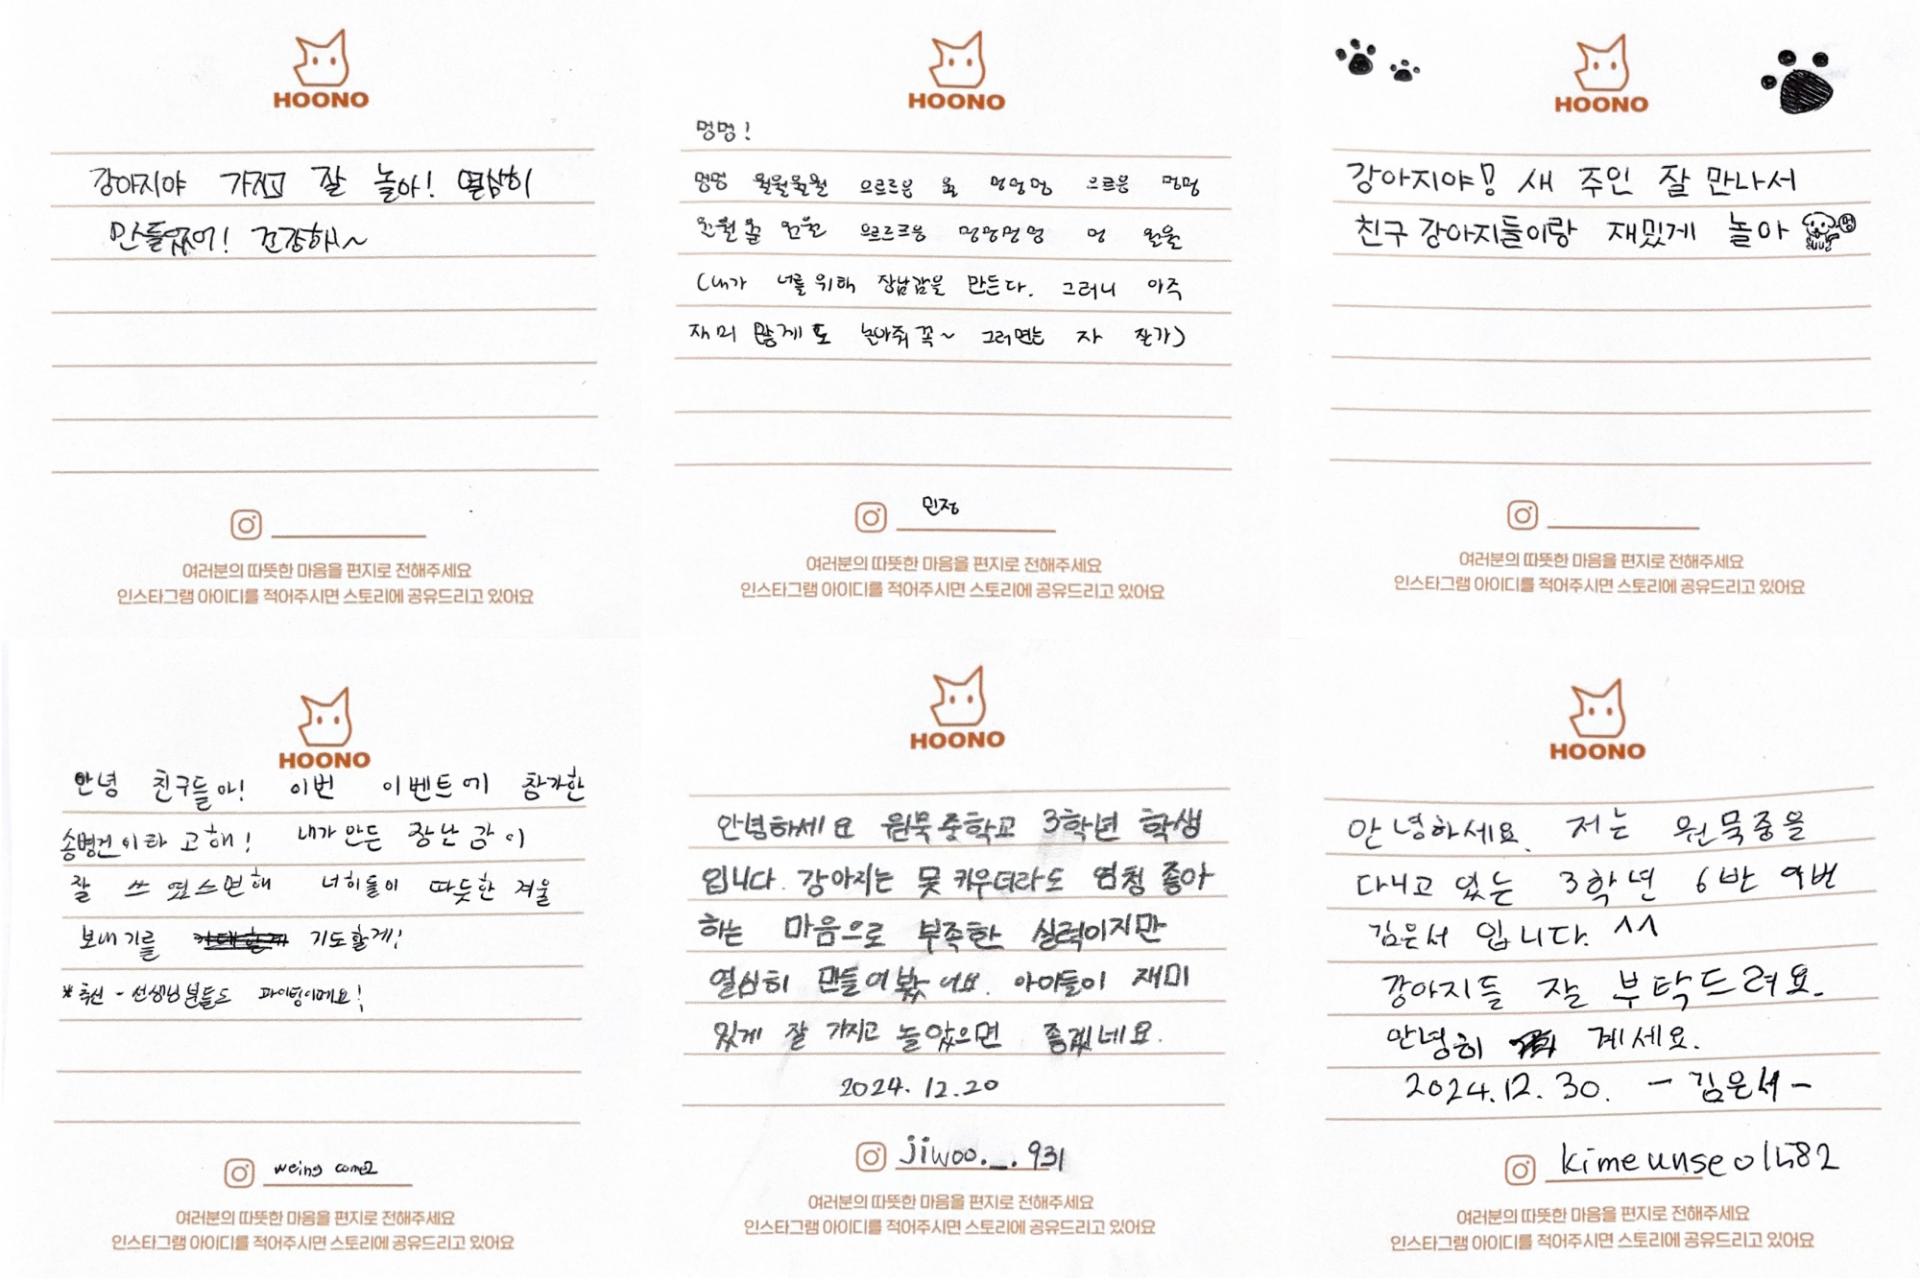 HOONO
강아지야 가지고 잘 놀아! 열심히
만들었어! 건강해~
여러분의 따뜻한 마음을 편지로 전해주세요
인스타그램 아이디를 적어주시면 스토리에 공유드리고 있어요
HOONO
멍멍!
멍멍 월월월월 으르르릉 멍멍멍 으르릉 멍멍
으르르르릉 멍멍멍멍 멍
(내가 너를 위해 장남감을 만든다. 그러니 아주
재미 많게도 놀아줘 꼭~ 그러면은 자 잘가)
민정
여러분의 따뜻한 마음을 편지로 전해주세요
인스타그램 아이디를 적어주시면 스토리에 공유드리고 있어요
HOONO
강아지야! 새 주인 잘 만나서
친구 강아지들이랑 재밌게 놀아 멍
여러분의 따뜻한 마음을 편지로 전해주세요
인스타그램 아이디를 적어주시면 스토리에 공유드리고 있어요
HOONO
안녕 친구들아! 이번 이벤트에 참가한
송병건이라 고해! 내가 만든 장난감이
잘 쓰 였스면해 너희들이 따듯한 겨울
보내기를 기도할게!
*추신 - 선생님분들도 파이팅이에요!
weing come2
여러분의 따뜻한 마음을 편지로 전해주세요
인스타그램 아이디를 적어주시면 스토리에 공유드리고 있어요
HOONO
안녕하세요 원묵중학교 3학년 학생
입니다. 강아지는 못 키우더라도 엄청 좋아
하는 마음으로 부족한 실력이지만
열심히 만들어봤어요. 아이들이 재미
있게 잘 가지고 놀았으면 좋겠네요.
2024.12.20
jiwoo._.931
여러분의 따뜻한 마음을 편지로 전해주세요
인스타그램 아이디를 적어주시면 스토리에 공유드리고 있어요
HOONO
안녕하세요. 저는 원묵중을
다니고 있는 3학년 6반 여번
김은서 입니다. ^^
강아지들 잘 부탁드려요.
안녕히 계세요.
2024.12.30. -김은서-
kimeunseo1482
여러분의 따뜻한 마음을 편지로 전해주세요
인스타그램 아이디를 적어주시면 스토리에 공유드리고 있어요